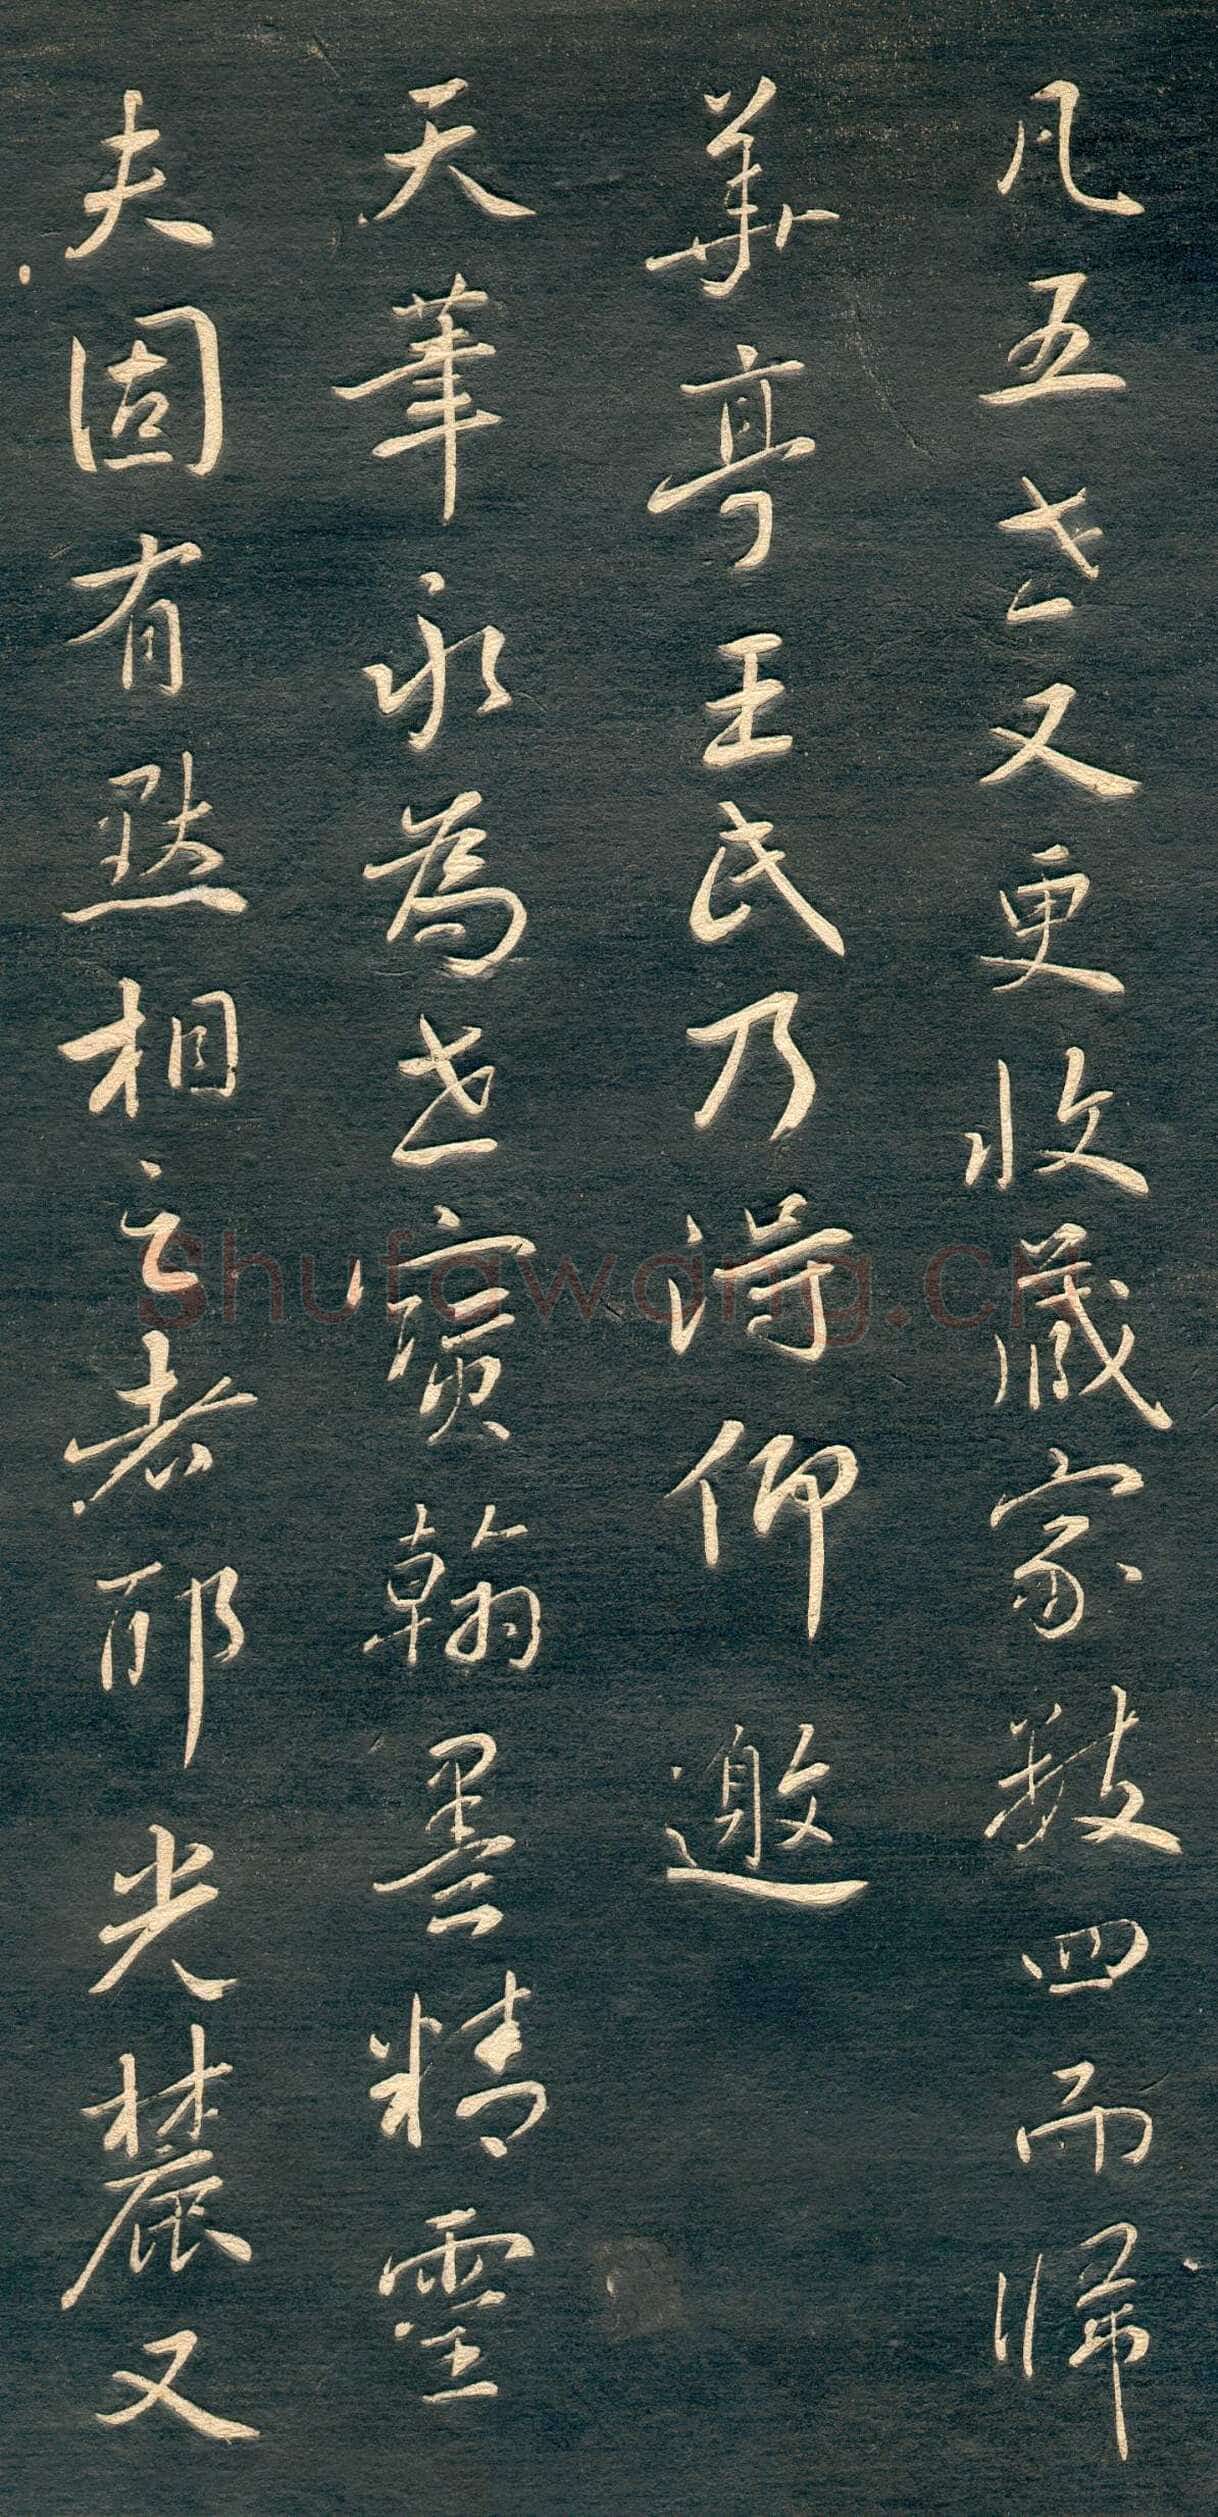 凡五世又更收藏家數四而歸
華亭王氏乃得仰邀
天筆永為世寶翰墨精靈
夫固有默相之者耶光麓又
Shufawang.CN